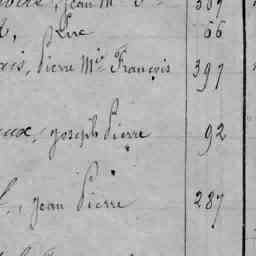 Jean M 389
Pierre 66
Pierre Mie François 397
aux, Joseph Pierre 92
Jean Pierre 287